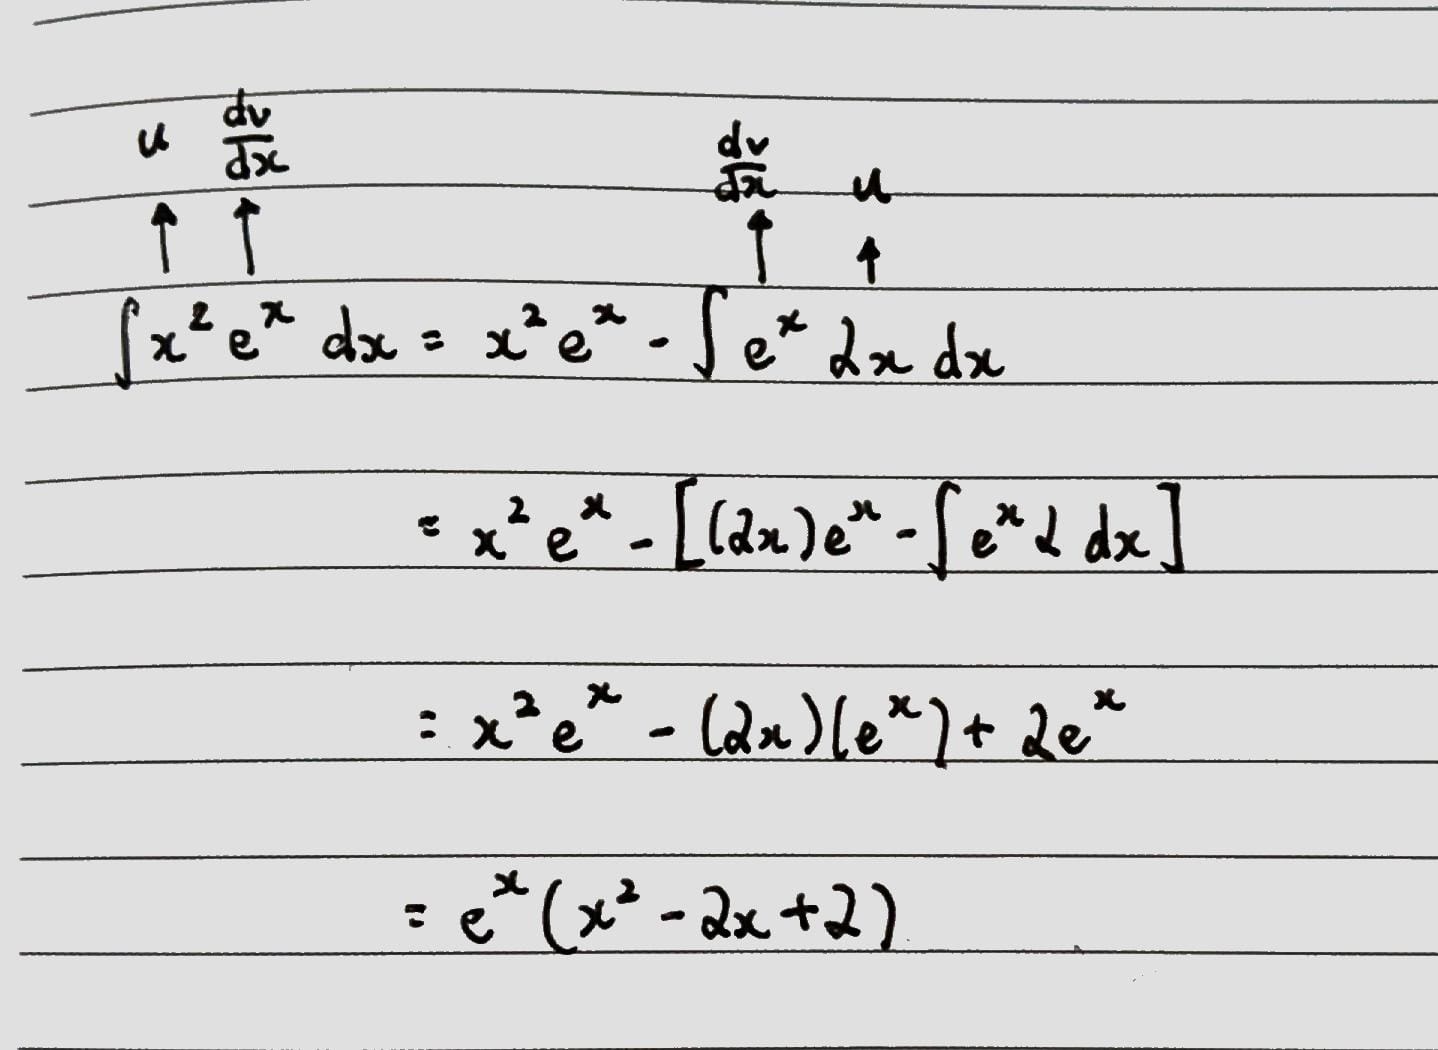 u dv/dx dv/dx u
↑ ↑ ↑ ↑
∫ x² eˣ dx = x² eˣ - ∫ eˣ 2x dx
= x² eˣ - [(2x)eˣ - ∫ eˣ 2 dx]
= x² eˣ - (2x)(eˣ) + 2eˣ
= eˣ (x² - 2x + 2)